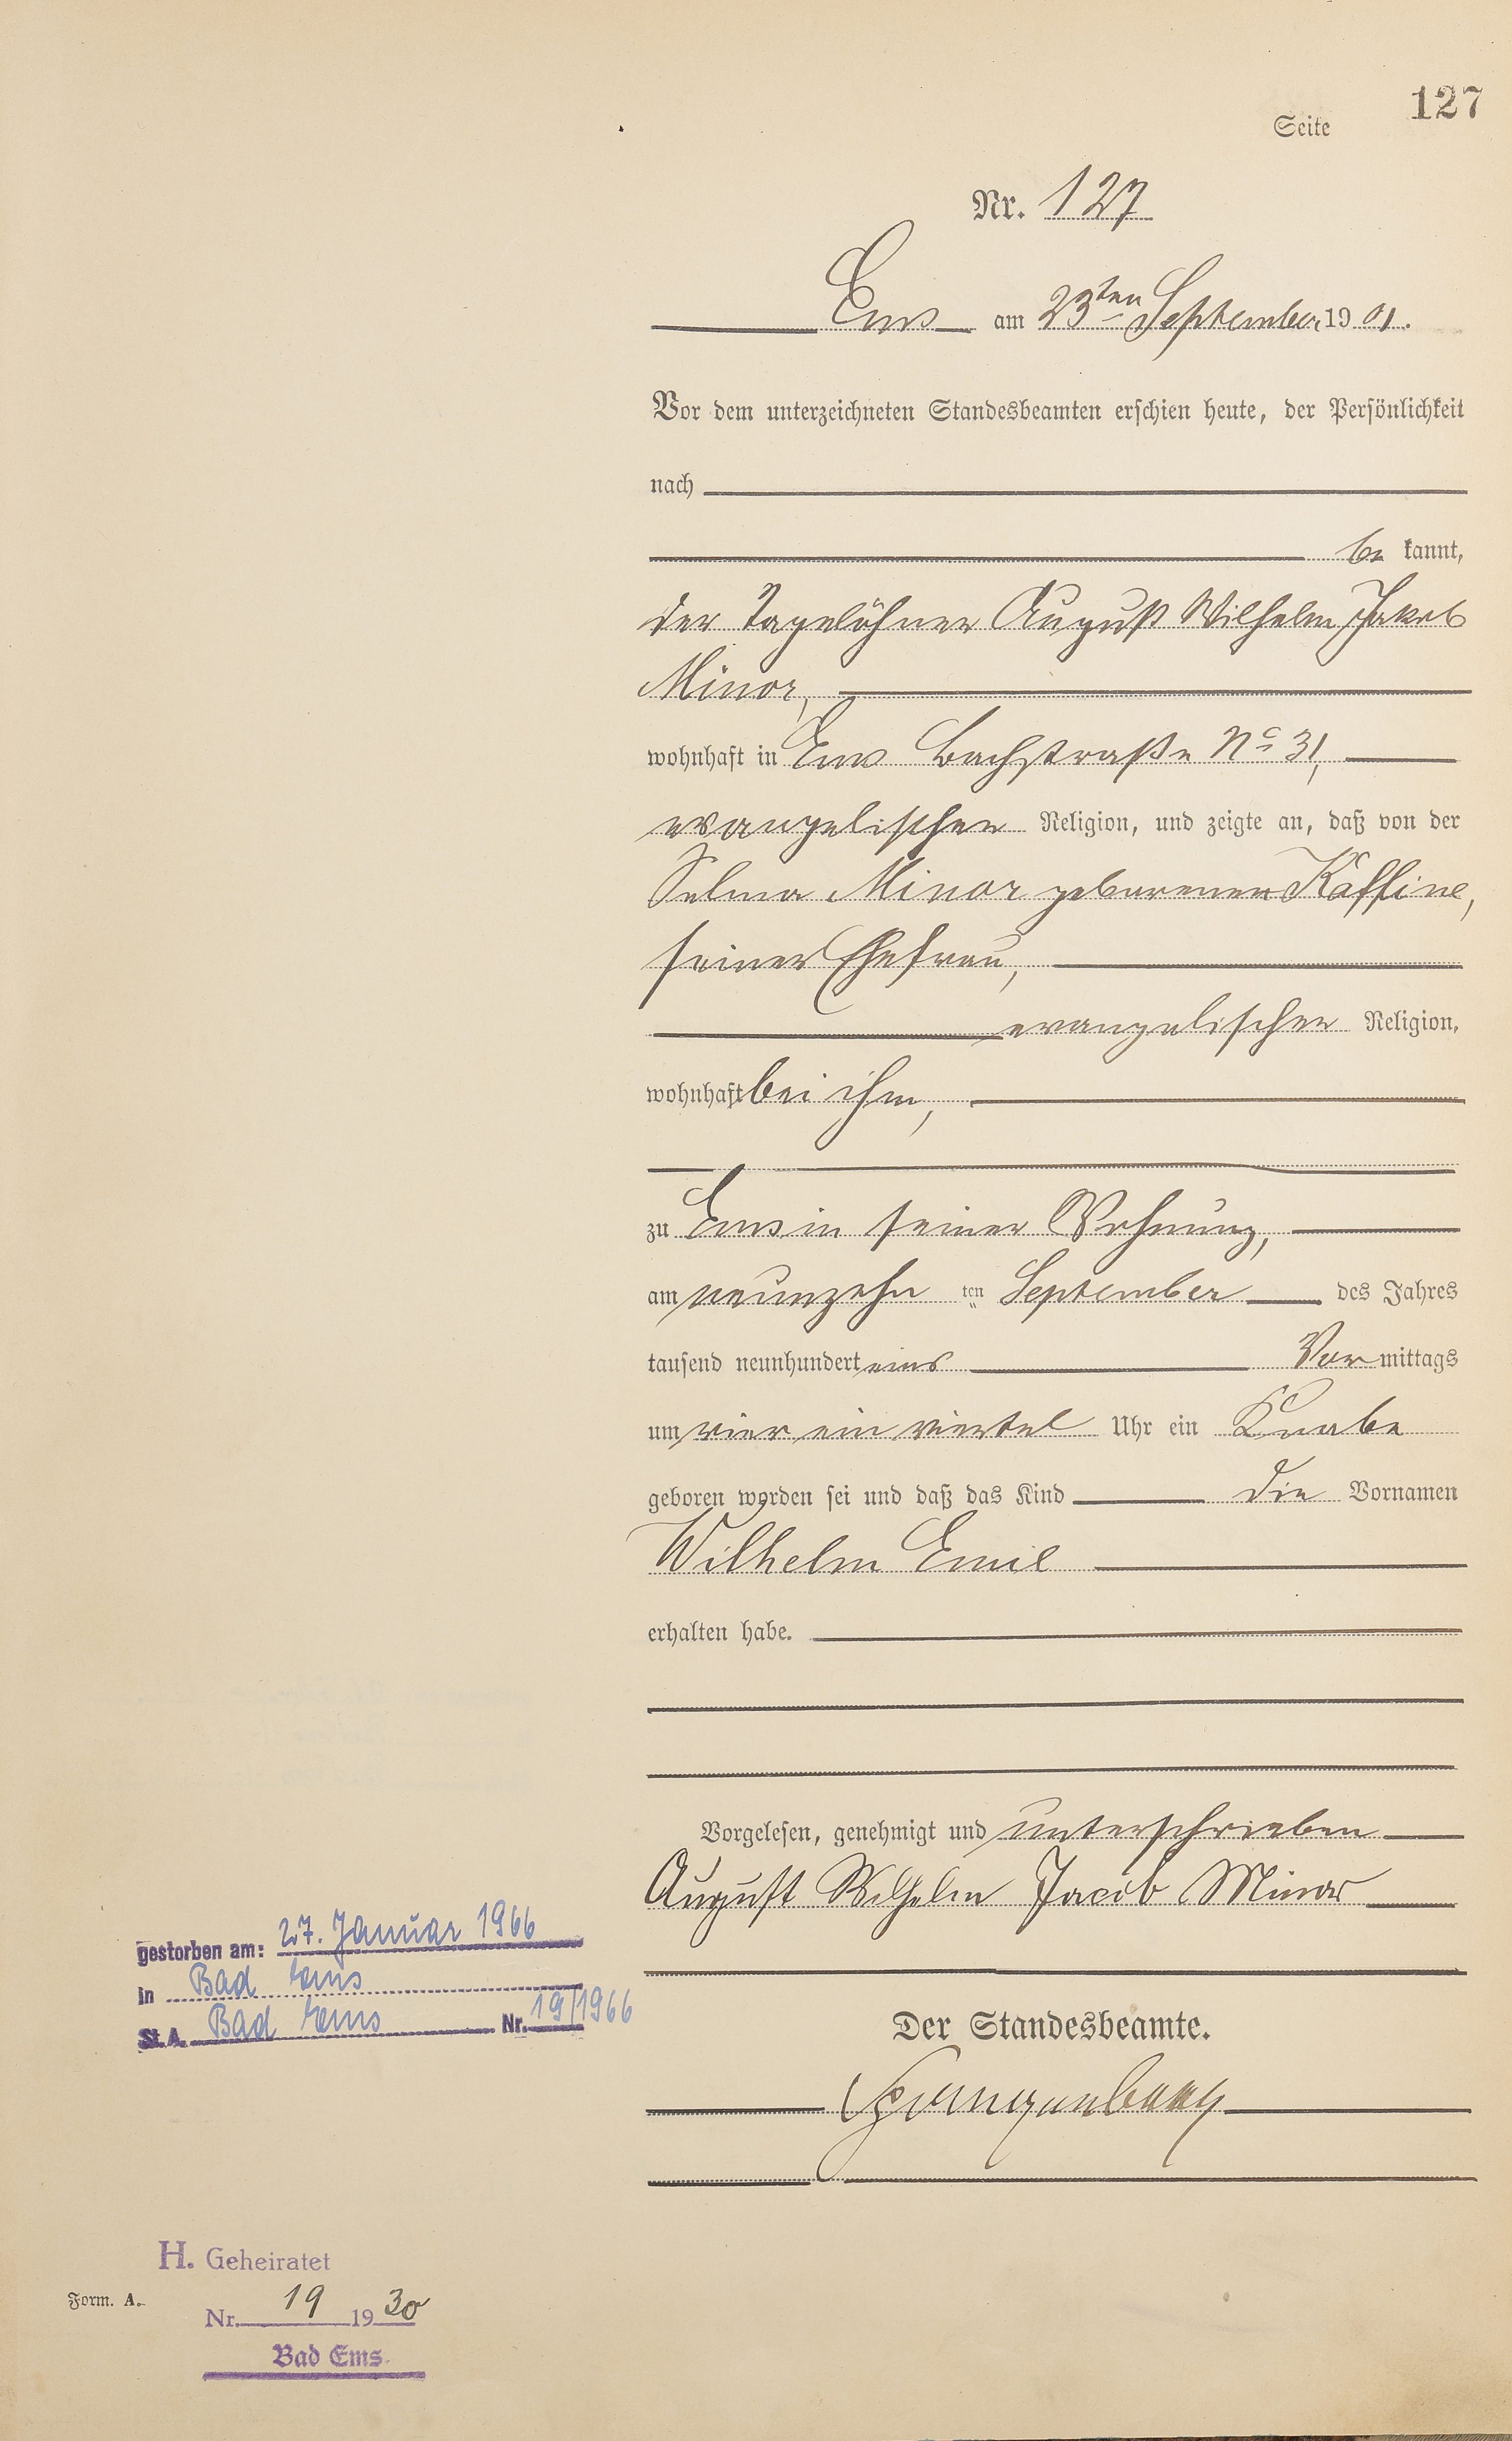 Seite 127
Nr. 127
Ems am 23ten September 1901.
Vor dem unterzeichneten Standesbeamten erschien heute, der Persönlichkeit
nach
be kannt,
der Tagelöhner August Wilhelm Jakob
Minor,
wohnhaft in Ems Bachstraße No 31,
evangelischer Religion, und zeigte an, daß von der
Selma Minor geborenen Käffine,
seiner Ehefrau,
evangelischer Religion,
wohnhaft bei ihm,
zu Ems in seiner Wohnung,
am neunzehn ten September des Jahres
tausend neunhundert eins Vormittags
um vier ein viertel Uhr ein Knabe
geboren worden sei und daß das Kind die Vornamen
Wilhelm Emil
erhalten habe.
Vorgelesen, genehmigt und unterschrieben
August Wilhelm Jacob Minor
Der Standesbeamte.
Spangenberg
gestorben am: 27. Januar 1966
in Bad Ems
St.A. Bad Ems Nr. 19/1966
H. Geheiratet
Form. A.
Nr. 19 1930
Bad Ems